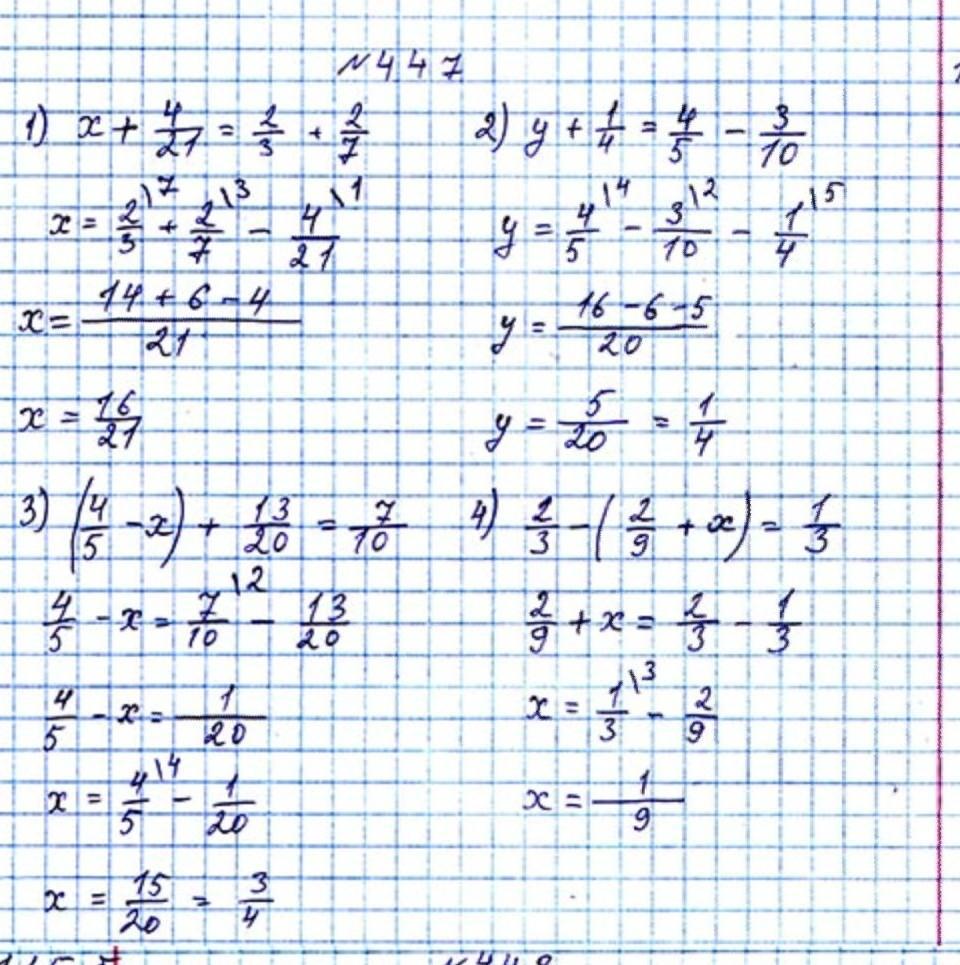 №447
1) x + 4/21 = 2/3 + 2/7
x = 2/3\7 + 2/7\3 - 4/21\1
x = (14 + 6 - 4)/21
x = 16/21
2) y + 1/4 = 4/5 - 3/10
y = 4/5\4 - 3/10\2 - 1/4\5
y = (16 - 6 - 5)/20
y = 5/20 = 1/4
3) (4/5 - x) + 13/20 = 7/10
4/5 - x = 7/10\2 - 13/20
4/5 - x = 1/20
x = 4/5\4 - 1/20
x = 15/20 = 3/4
4) 2/3 - (2/9 + x) = 1/3
2/9 + x = 2/3 - 1/3
x = 1/3\3 - 2/9
x = 1/9